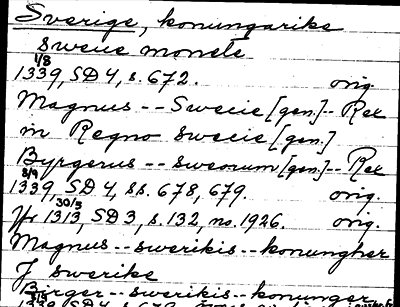 Sverige, konungarike
Swecie monete
1/8
1339, SD 4, s. 672. orig.
Magnus -- Swecie [gen.] -- Rex
in Regno Swecie [gen.]
Byrgerus -- sweorum [gen.] -- Rex
8/9
1339, SD 4, ss. 678, 679. orig.
30/5
1313, SD 3, s. 132, no. 1926. orig.
Magnus -- swerikis -- konungher
J swerike
Birger -- swerikis -- konunger